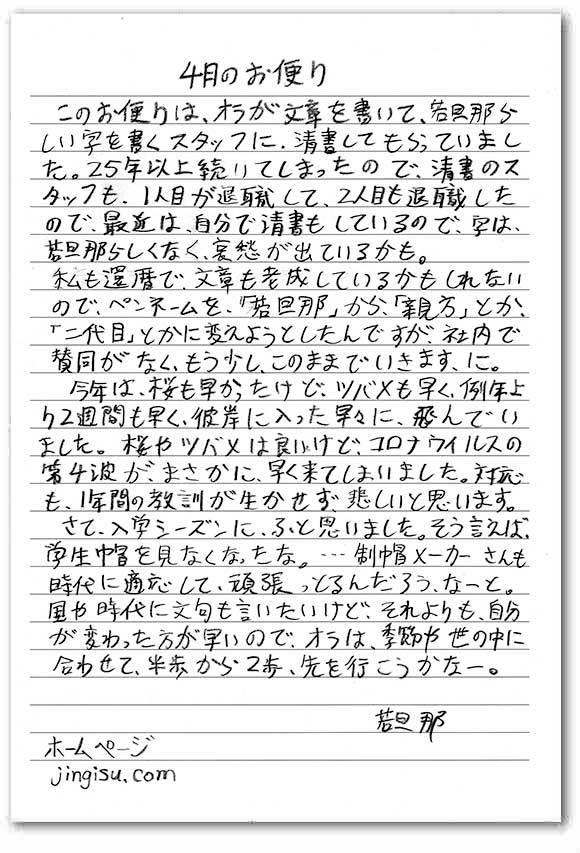 4月のお便り
このお便りは、オラが文章を書いて、若旦那ら
しい字を書くスタッフに、清書してもらっていまし
た。25年以上続いてしまったので、清書のス
タッフも、1人目が退職して、2人目も退職した
ので、最近は、自分で清書もしているので、字は、
若旦那らしくなく、哀愁が出ているかも。
私も還暦で、文章も老成しているかもしれない
ので、ペンネームを、「若旦那」から、「親方」とか、
「二代目」とかに変えようとしたんですが、社内で
賛同がなく、もう少し、このままでいきます、に。
今年は、桜も早かったけど、ツバメも早く、例年よ
り2週間も早く、彼岸に入った早々に、飛んでい
ました。桜やツバメは良いけど、コロナウイルスの
第4波が、まさかに、早く来てしまいました。対応
も、1年間の教訓が生かせず、悲しいと思います。
さて、入学シーズンに、ふと思いました。そう言えば、
学生中冒を見なくなったな。…制中冒メーカーさんも
時代に適応して、頑張っとるんだろう、なーと。
国や時代に文句も言いたいけど、それよりも、自分
が変わった方が早いので、オラは、季節や世の中に
合わせて、半歩から2歩、先を行こうかなー。
若旦那
ホームページ
jingisu.com